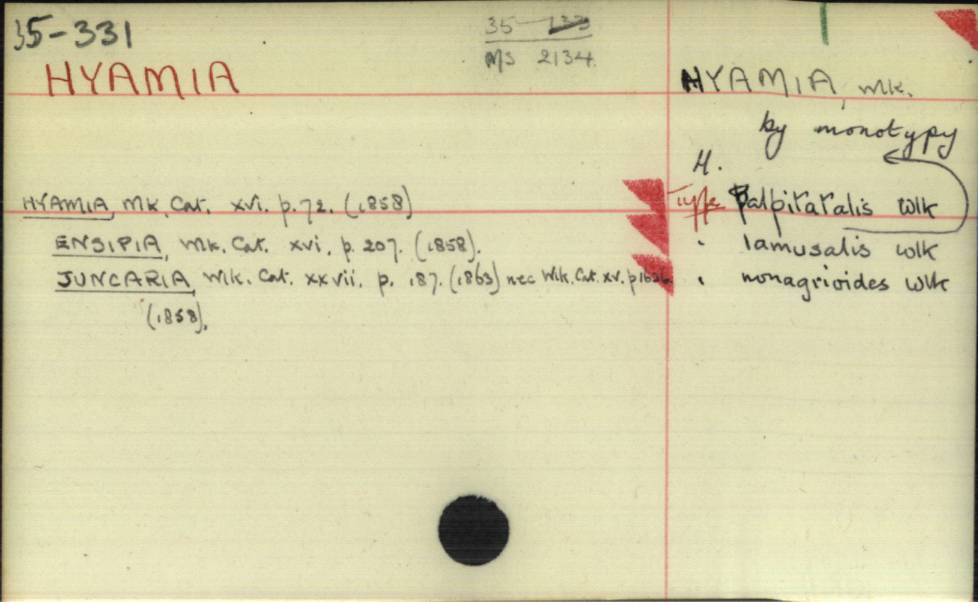 35-331
35
MS 2134
HYAMIA
HYAMIA, Wlk.
by monotypy
H.
HYAMIA, Wlk. Cat. xvi. p. 72. (1858)
Type Palpitatalis Wlk
ENSIPIA, Wlk. Cat. xvi. p. 207. (1858).
" lamusalis Wlk
JUNCARIA, Wlk. Cat. xxvii. p. 187. (1863) nec Wlk. Cat. xv. p 1626
" nonagrioides Wlk
(1858).